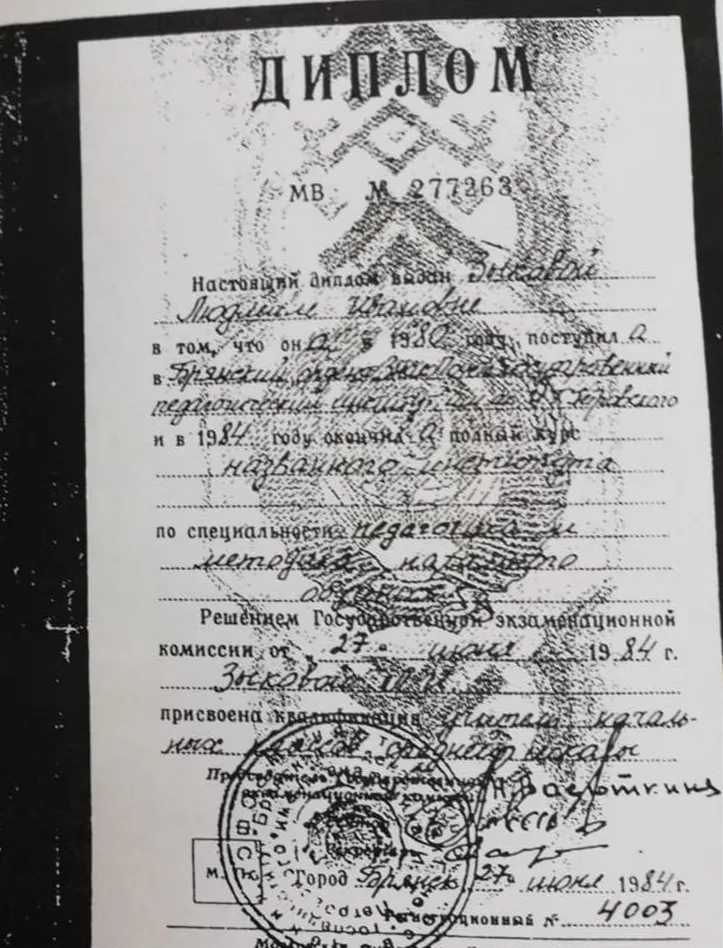 ДИПЛОМ
МВ № 277263
Настоящий диплом выдан Зыковой
Людмиле Ивановне
в том, что она в 1980 году поступила
в Брянский ордена Знак Почета государственный
педагогический институт им. ак. И.Г. Петровского
и в 1984 году окончила полный курс
названного института
по специальности педагогика и
методика начального
обучения
Решением Государственной экзаменационной
комиссии от 27 июня 1984 г.
Зыковой Л.И.
присвоена квалификация учителя началь-
ных классов средней школы
Председатель Государственной
экзаменационной комиссии
Секретарь
М.
Город Брянск 27 июня 1984 г.
Регистрационный № 4003